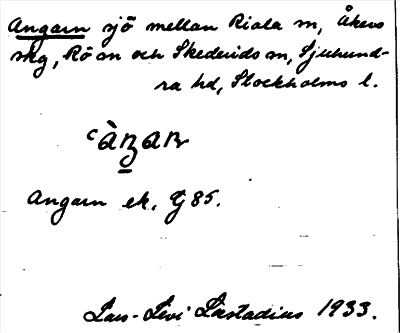 Angarn sjö mellan Riala sn, Åkers
skg, Rö sn och Skederids sn, Sjuhund-
ra hd, Stockholms l.
Angarn ek. G 85.
Lars-Levi Læstadius 1933.